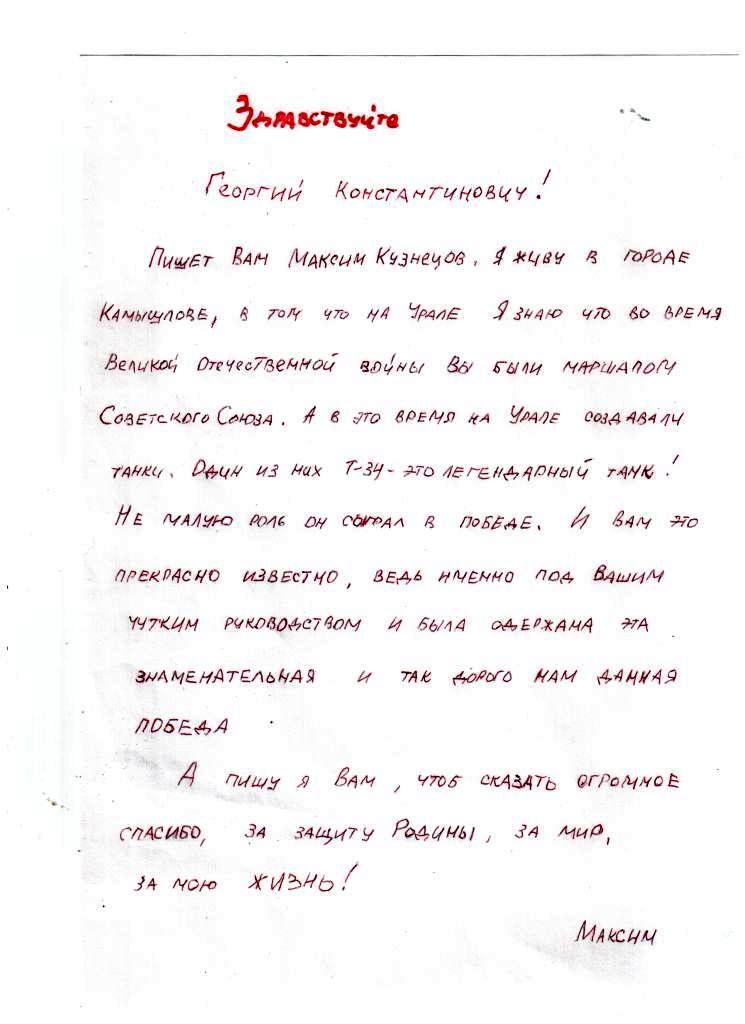 Здравствуйте
Георгий Константинович!
Пишет Вам Максим Кузнецов. Я живу в городе
Камышлове, в том что на Урале Я знаю что во время
Великой Отечественной войны Вы были маршалом
Советского Союза. А в это время на Урале создавали
танки. Один из них Т-34-это легендарный танк!
Не малую роль он сыграл в победе. И вам это
прекрасно известно, ведь именно под Вашим
чутким руководством и была одержана эта
знаменательная и так дорого нам данная
победа
А пишу я Вам, чтоб сказать огромное
спасибо, за защиту Родины, за мир,
за мою жизнь!
Максим